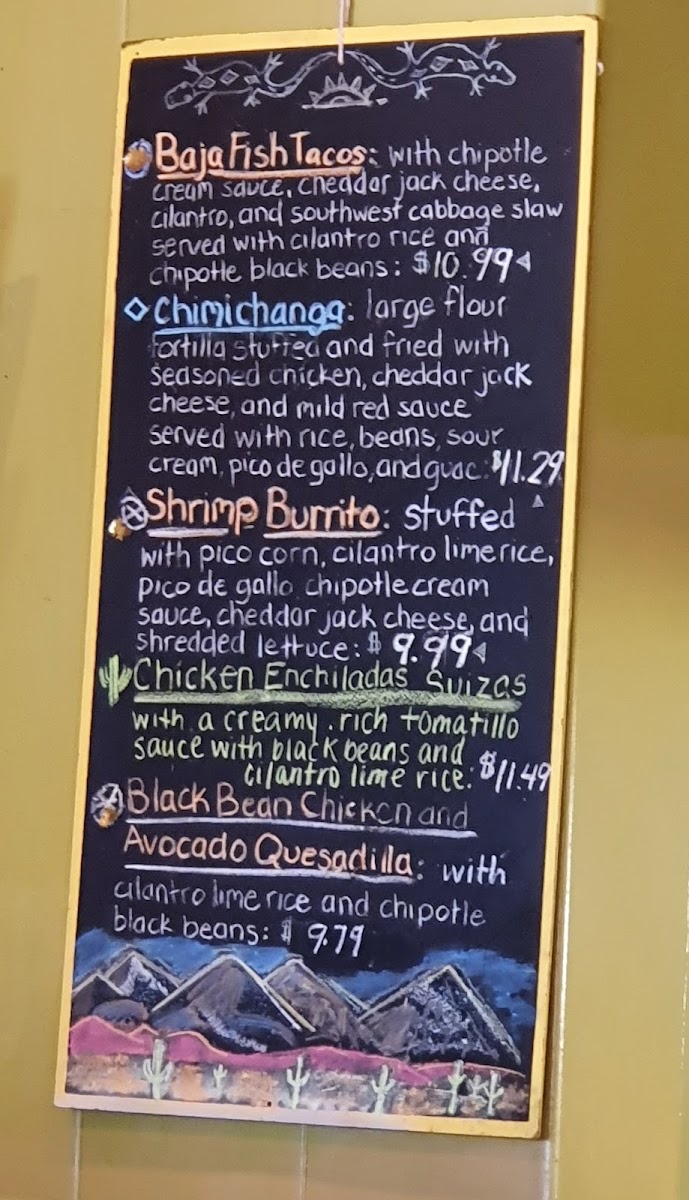 Baja Fish Tacos: with chipotle
cream sauce, cheddar jack cheese,
cilantro, and southwest cabbage slaw
served with cilantro rice and
chipotle black beans: $10.99
Chimichanga: large flour
tortilla stuffed and fried with
seasoned chicken, cheddar jack
cheese, and mild red sauce
served with rice, beans, sour
cream, pico de gallo, and guac: $11.29
Shrimp Burrito: stuffed
with pico corn, cilantro lime rice,
pico de gallo, chipotle cream
sauce, cheddar jack cheese, and
shredded lettuce: $9.99
Chicken Enchiladas Suizas
with a creamy, rich tomatillo
sauce with black beans and
cilantro lime rice: $11.49
Black Bean Chicken and
Avocado Quesadilla: with
cilantro lime rice and chipotle
black beans: $9.79